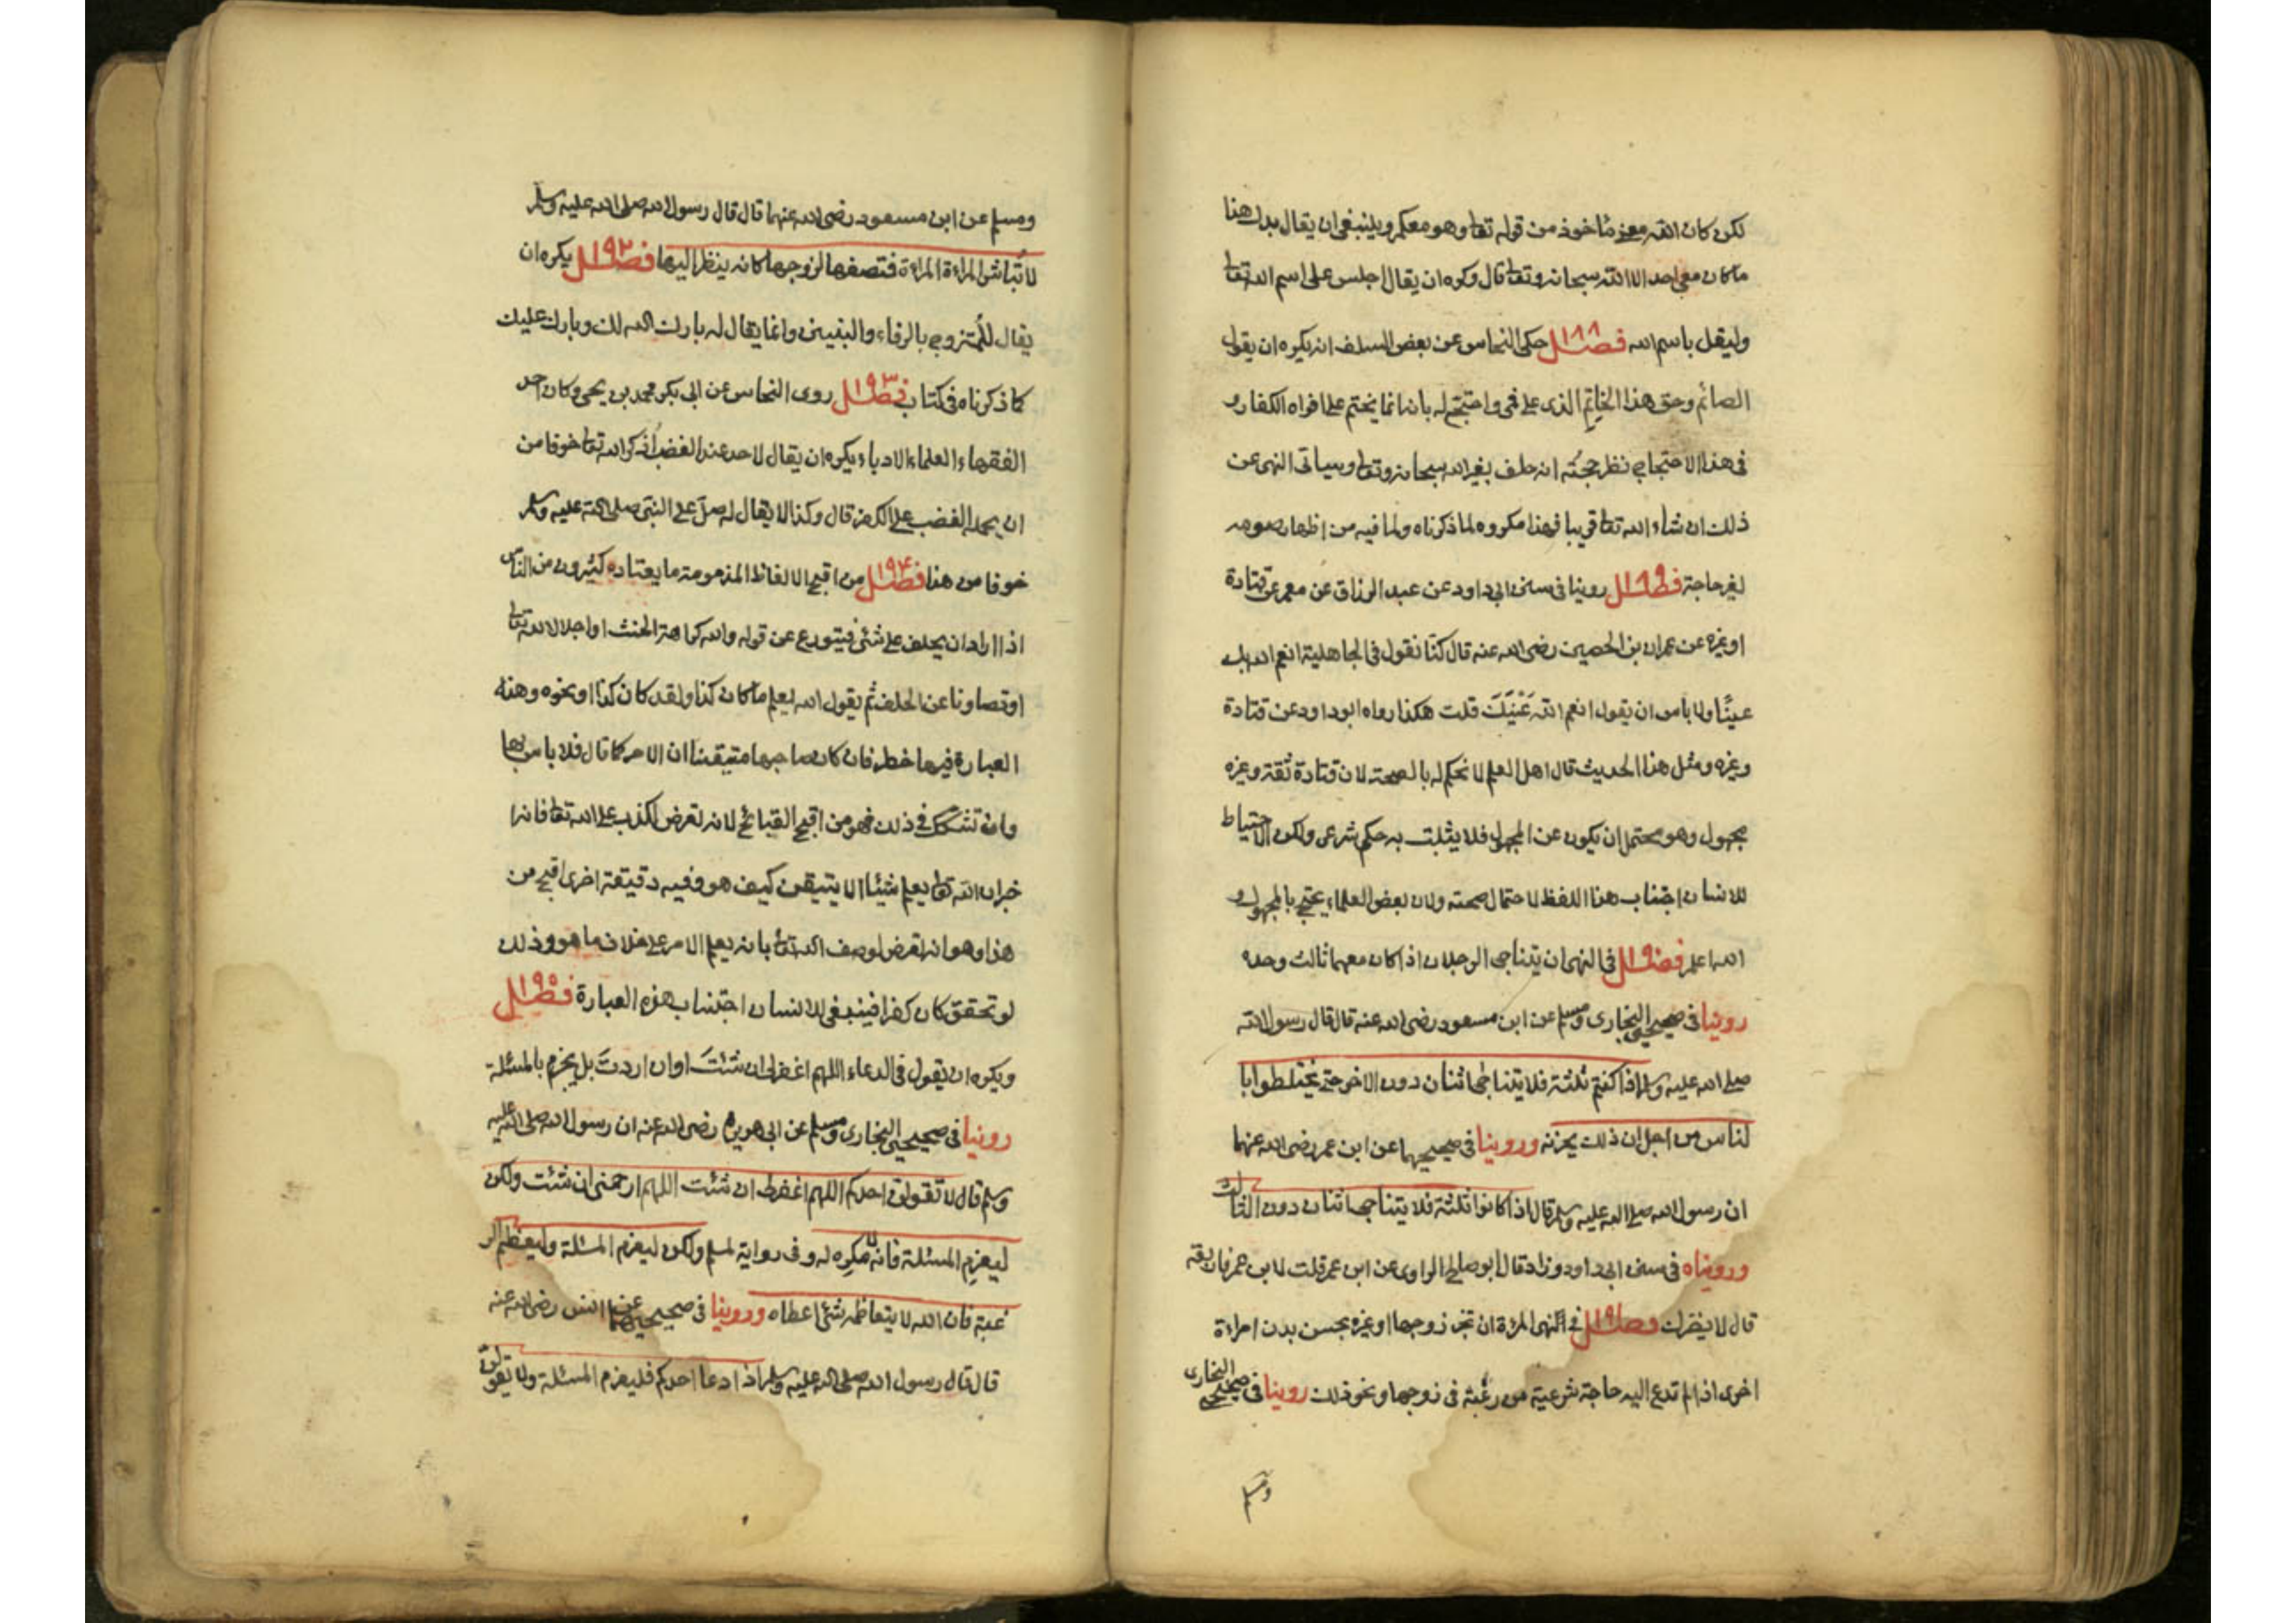 لكن كان الله معنى مأخوذ من قوله تعا وهو معكم وينبغى ان يقال بدل هذا
ما كان معى احد الا الله سبحانه وتعا قال وكره ان يقال اجلس على اسم الله تعا
وليقل باسم الله فصل ١٨٨ حكى النحاس عن بعض السلف انه يكره ان يقول
الصائم وحق هذا الخاتم الذى على فمى واحتج له بانه انما يختم على افواه الكفار و
فى هذا الاحتجاج نظر حجته انه حلف بغير الله سبحانه وتعا وسياتى النهى عن
ذلك ان شاء الله تعا قريبا فهذا مكروه لما ذكرناه ولما فيه من اظهار صومه
لغير حاجة فصل ١٨٩ روينا فى سنن ابى داود عن عبد الرزاق عن معمر عن قتادة
او غيره عن عمران بن الحصين رضى الله عنه قال كنا نقول فى الجاهلية انعم الله بك
عينًا ولا باس ان يقول انعم الله عَيْنَكَ قلت هكذا رواه ابو داود عن قتادة
وغيره ومثل هذا الحديث قال اهل العلم لا نحكم له بالصحة لان قتادة ثقة وغيره
مجهول وهو محتمل ان يكون عن المجهول فلا يثبت به حكم شرعى ولكن الاحتياط
للانسان اجتناب هذا اللفظ لاحتمال صحته ولان بعض العلماء يحتج بالمجهول و
الله اعلم فصل ١٩٠ فى النهى ان يتناجى الرجلان اذا كان معهما ثالث وحده
روينا فى صحيحى البخارى ومسلم عن ابن مسعود رضى الله عنه قال قال رسول الله
صلى الله عليه وسلم اذا كنتم ثلثة فلا يتناجى اثنان دون الاخر حتى يختلطوا با
لناس من اجل ان ذلك يحزنه وروينا فى صحيحيهما عن ابن عمر رضى الله عنهما
ان رسول الله صلى الله عليه وسلم قال اذا كانوا ثلثة فلا يتناجى اثنان دون الثالث
ورويناه فى سنن ابى داود وزاد قال ابو صالح الراوى عن ابن عمر قلت لابن عمر فاربعة
قال لا يضرك فصل ١٩١ فى النهى المرأة ان تخبر زوجها او غيره بحسن بدن امراءة
اخرى اذا لم تدع اليه حاجة شرعية من رغبة فى زوجها ونحو ذلك روينا فى صحيحى البخارى
ومسلم
ومسلم عن ابن مسعود رضى الله عنهما قال قال رسول الله صلى الله عليه وسلم
لا تُباشر المراءة المراءة فتصفها لزوجها كانه ينظر اليها فصل ١٩٢ يكره ان
يقال للمتزوج بالرفاء والبنين وانما يقال له بارك الله لك وبارك عليك
كما ذكرناه فى كتاب فصل ١٩٣ روى النحاس عن ابى بكر محمد بن يحيى وكان احد
الفقهاء العلماء الادباء يكره ان يقال لاحد عند الغضب اُذكر الله تعا خوفا من
ان يحمله الغضب على الكفر قال وكذا لا يقال له صلّ على النبى صلى الله عليه وسلم
خوفا من هذا فصل ١٩٤ من اقبح الالفاظ المذمومة ما يعتاده كثيرون من الناس
اذا اراد ان يحلف على شئ فيتورع عن قوله والله كراهة الحنث او اجلالا لله تعا
او تصاونا عن الحلف ثم يقول الله يعلم ما كان كذا ولقد كان كذا او نحوه وهذه
العبارة فيها خطر فان كان صاحبها متيقنا ان الامر كما قال فلا باس بها
وان تشكك فى ذلك فهو من اقبح القبائح لانه تعرض لكذب على الله تعا فانه ا
خبر ان الله تعا يعلم شيئا لا يتيقن كيف هو وفيه دقيقة اخرى اقبح من
هذا وهو انه تعرض لوصف الله تعا بانه يعلم الامر على خلاف ما هو وذلك
لو تحقق كان كفرا فينبغى للانسان اجتناب هذه العبارة فصل ١٩٥
ويكره ان يقول فى الدعاء اللهم اغفر لى ان شئتَ او ان اردتَ بل يجزم بالمسئلة
روينا فى صحيحى البخارى ومسلم عن ابى هريره رضى الله عنه ان رسول الله صلى الله عليه
وسلم قال لا تقولن احدكم اللهم اغفر لى ان شئت اللهم ارحمنى ان شئت ولكن
ليعزم المسئلة فانه لا مكره له وفى رواية لمسلم ولكن ليعزم المسئلة وليعظم الر
غبة فان الله لا يتعاظمه شئ اعطاه وروينا فى صحيحيهما عن انس رضى الله عنه
قال قال رسول الله صلى الله عليه وسلم اذا دعا احدكم فليعزم المسئلة ولا يقولن